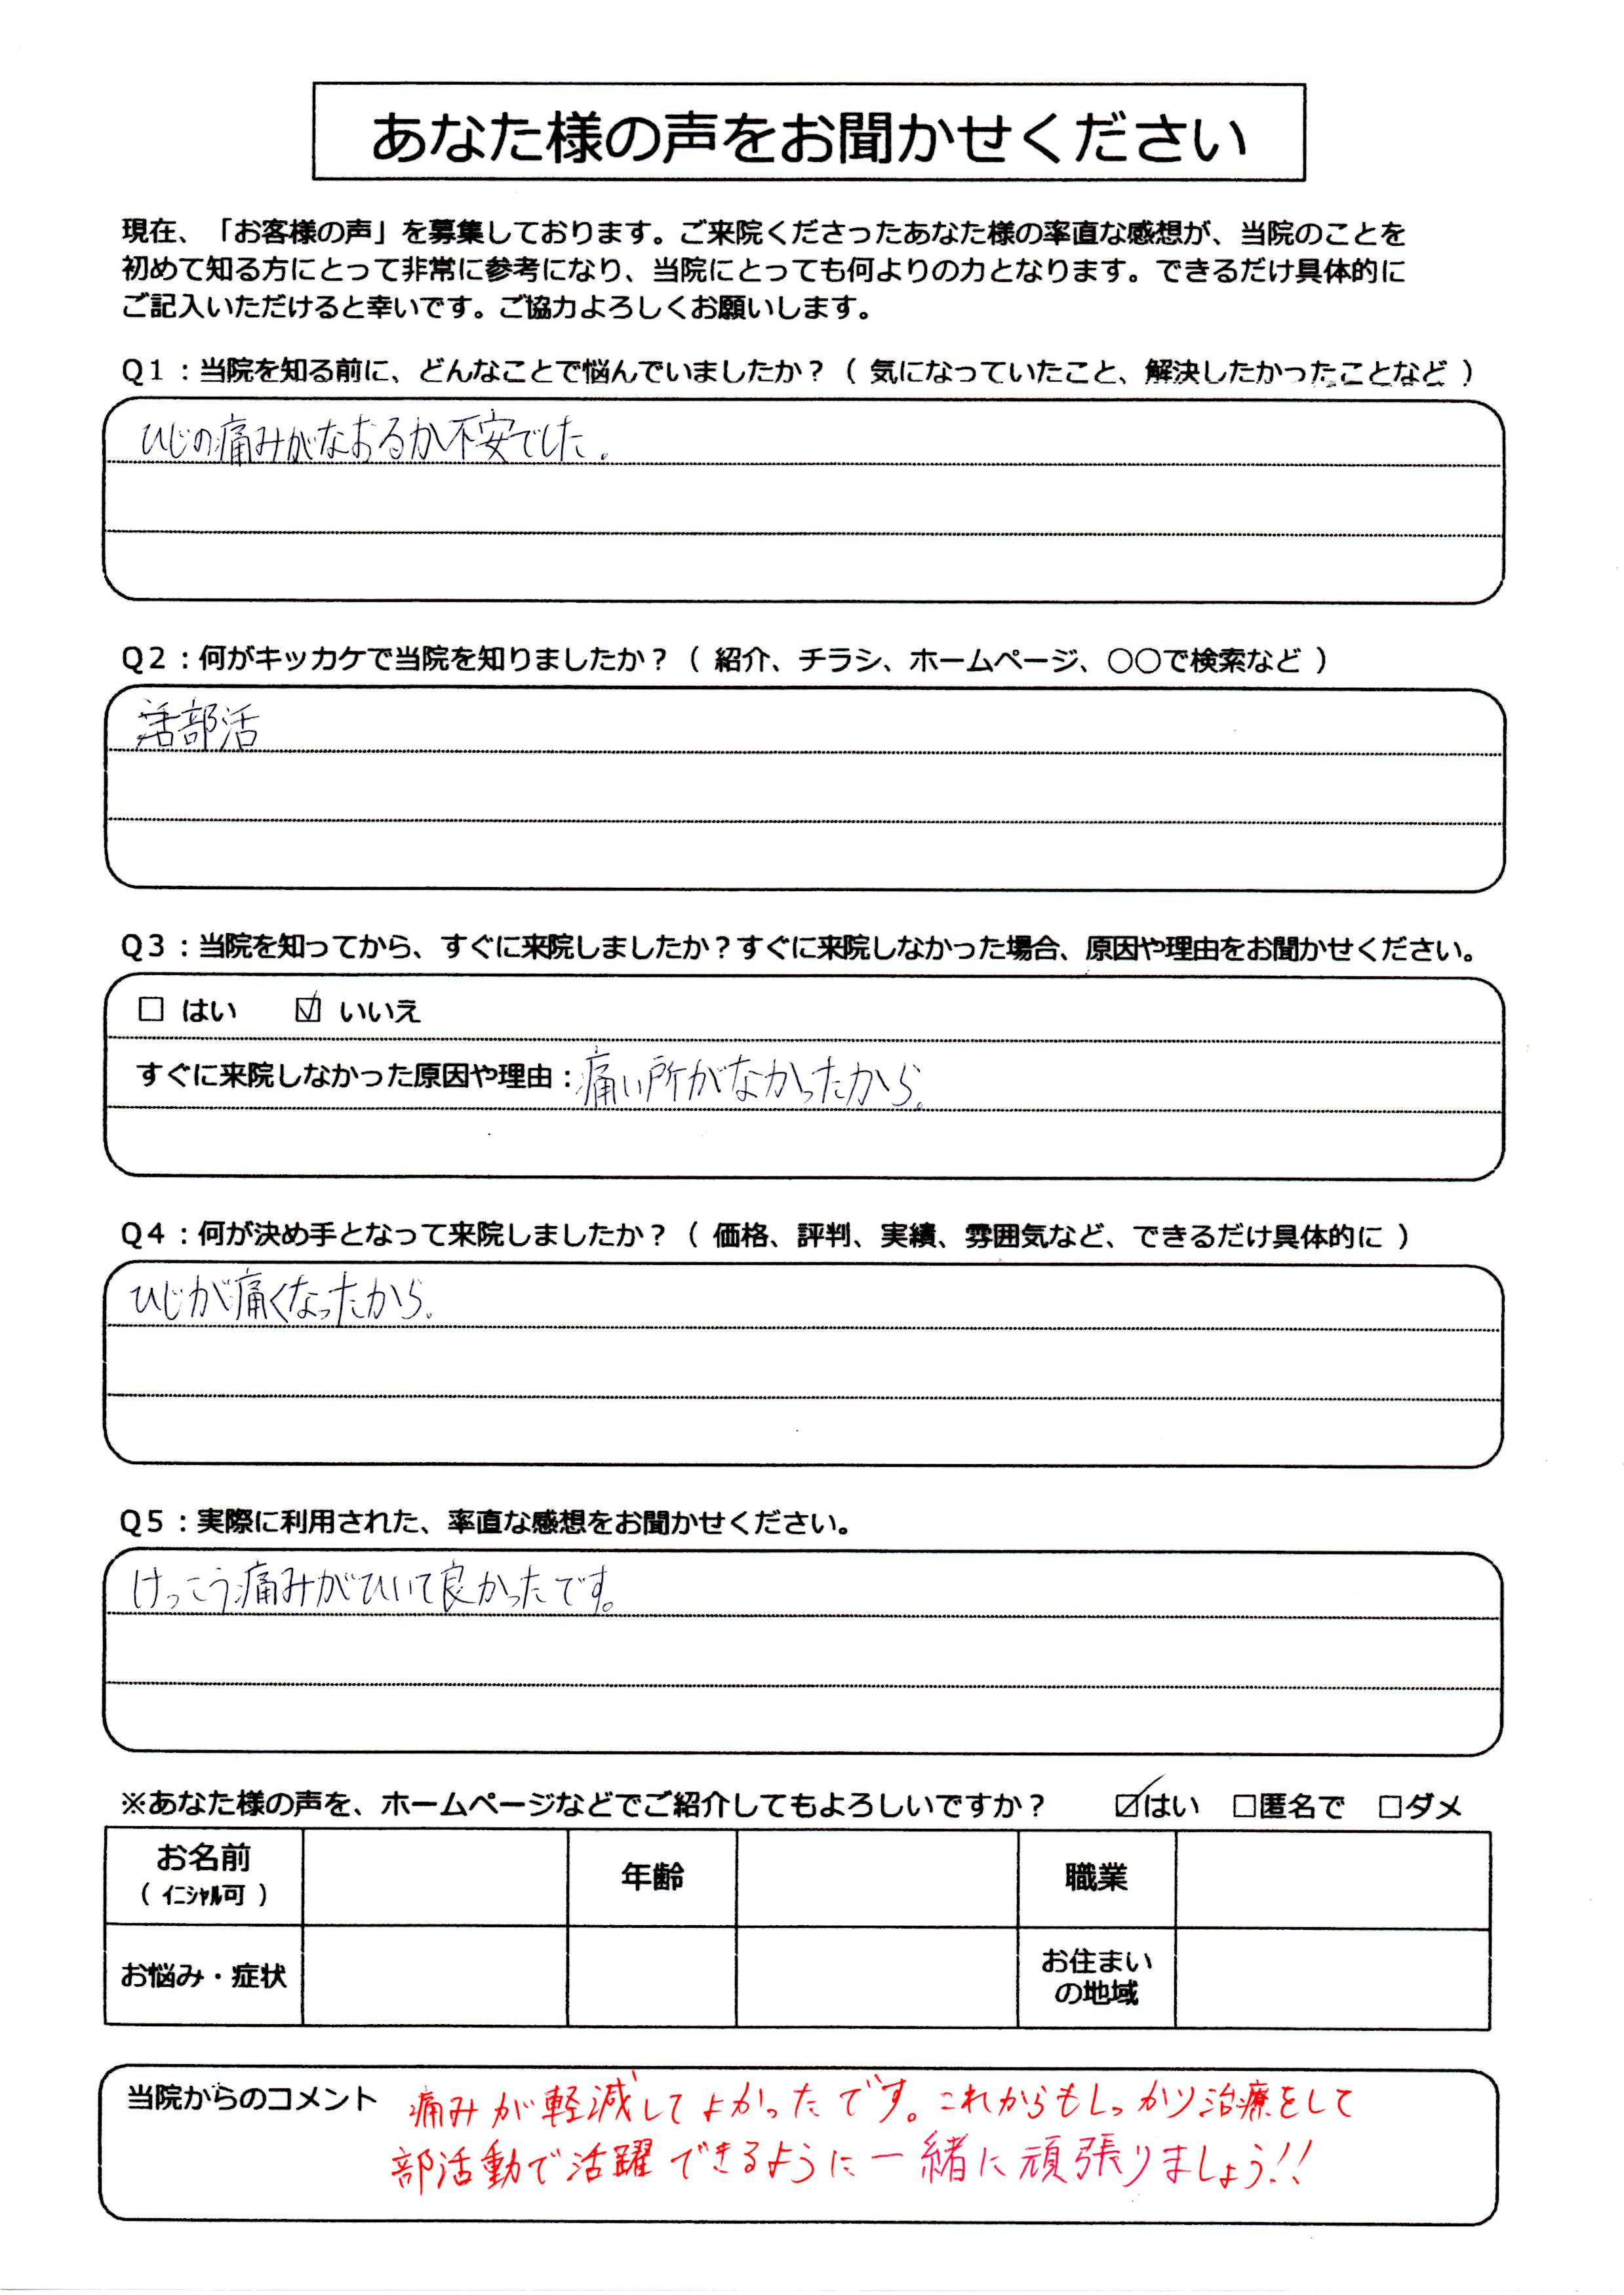 あなた様の声をお聞かせください
現在、「お客様の声」を募集しております。ご来院くださったあなた様の率直な感想が、当院のことを
初めて知る方にとって非常に参考になり、当院にとっても何よりの力となります。できるだけ具体的に
ご記入いただけると幸いです。ご協力よろしくお願いします。
Q1：当院を知る前に、どんなことで悩んでいましたか？（ 気になっていたこと、解決したかったことなど ）
ひじの痛みがなおるか不安でした。
Q2：何がキッカケで当院を知りましたか？（ 紹介、チラシ、ホームページ、○○で検索など ）
部活
Q3：当院を知ってから、すぐに来院しましたか？すぐに来院しなかった場合、原因や理由をお聞かせください。
□ はい ☑ いいえ
すぐに来院しなかった原因や理由：痛い所がなかったから。
Q4：何が決め手となって来院しましたか？（ 価格、評判、実績、雰囲気など、できるだけ具体的に ）
ひじが痛くなったから。
Q5：実際に利用された、率直な感想をお聞かせください。
けっこう痛みがひいて良かったです。
※あなた様の声を、ホームページなどでご紹介してもよろしいですか？ ☑はい □匿名で □ダメ
お名前 年齢 職業
（ ｲﾆｼｬﾙ可 ）
お悩み・症状 お住まい
の地域
当院からのコメント 痛みが軽減してよかったです。これからもしっかり治療をして
部活動で活躍できるように一緒に頑張りましょう!!